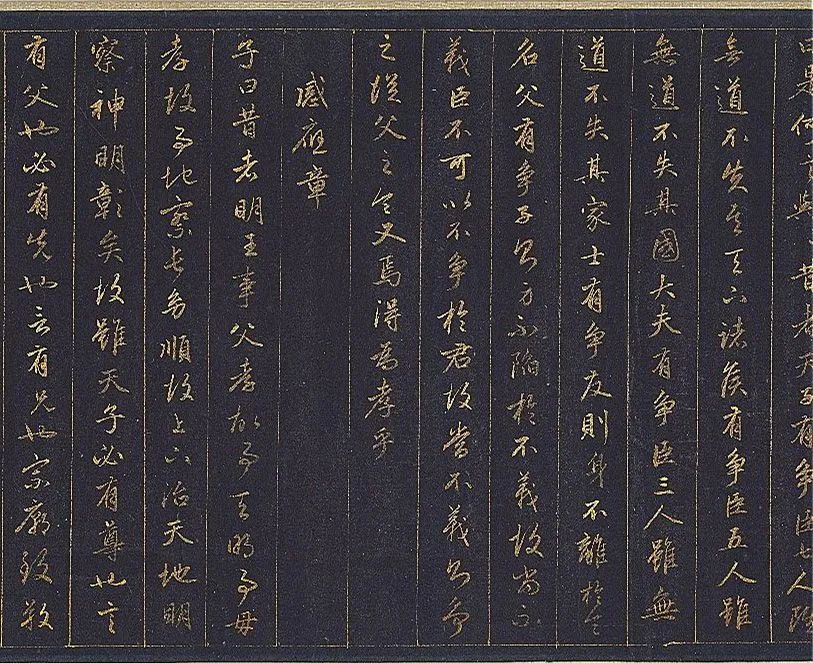 曰是何言與昔者天子有争臣七人雖
無道不失其天下諸侯有争臣五人雖
無道不失其國大夫有争臣三人雖無
道不失其家士有争友則身不離於令
名父有争子則身不陷於不義故當不
義臣不可以不争於君故當不義則争
之從父之令又焉得為孝乎
感應章
子曰昔者明王事父孝故事天明事母
孝故事地察長幼順故上下治天地明
察神明彰矣故雖天子必有尊也言
有父也必有先也言有兄也宗廟致敬